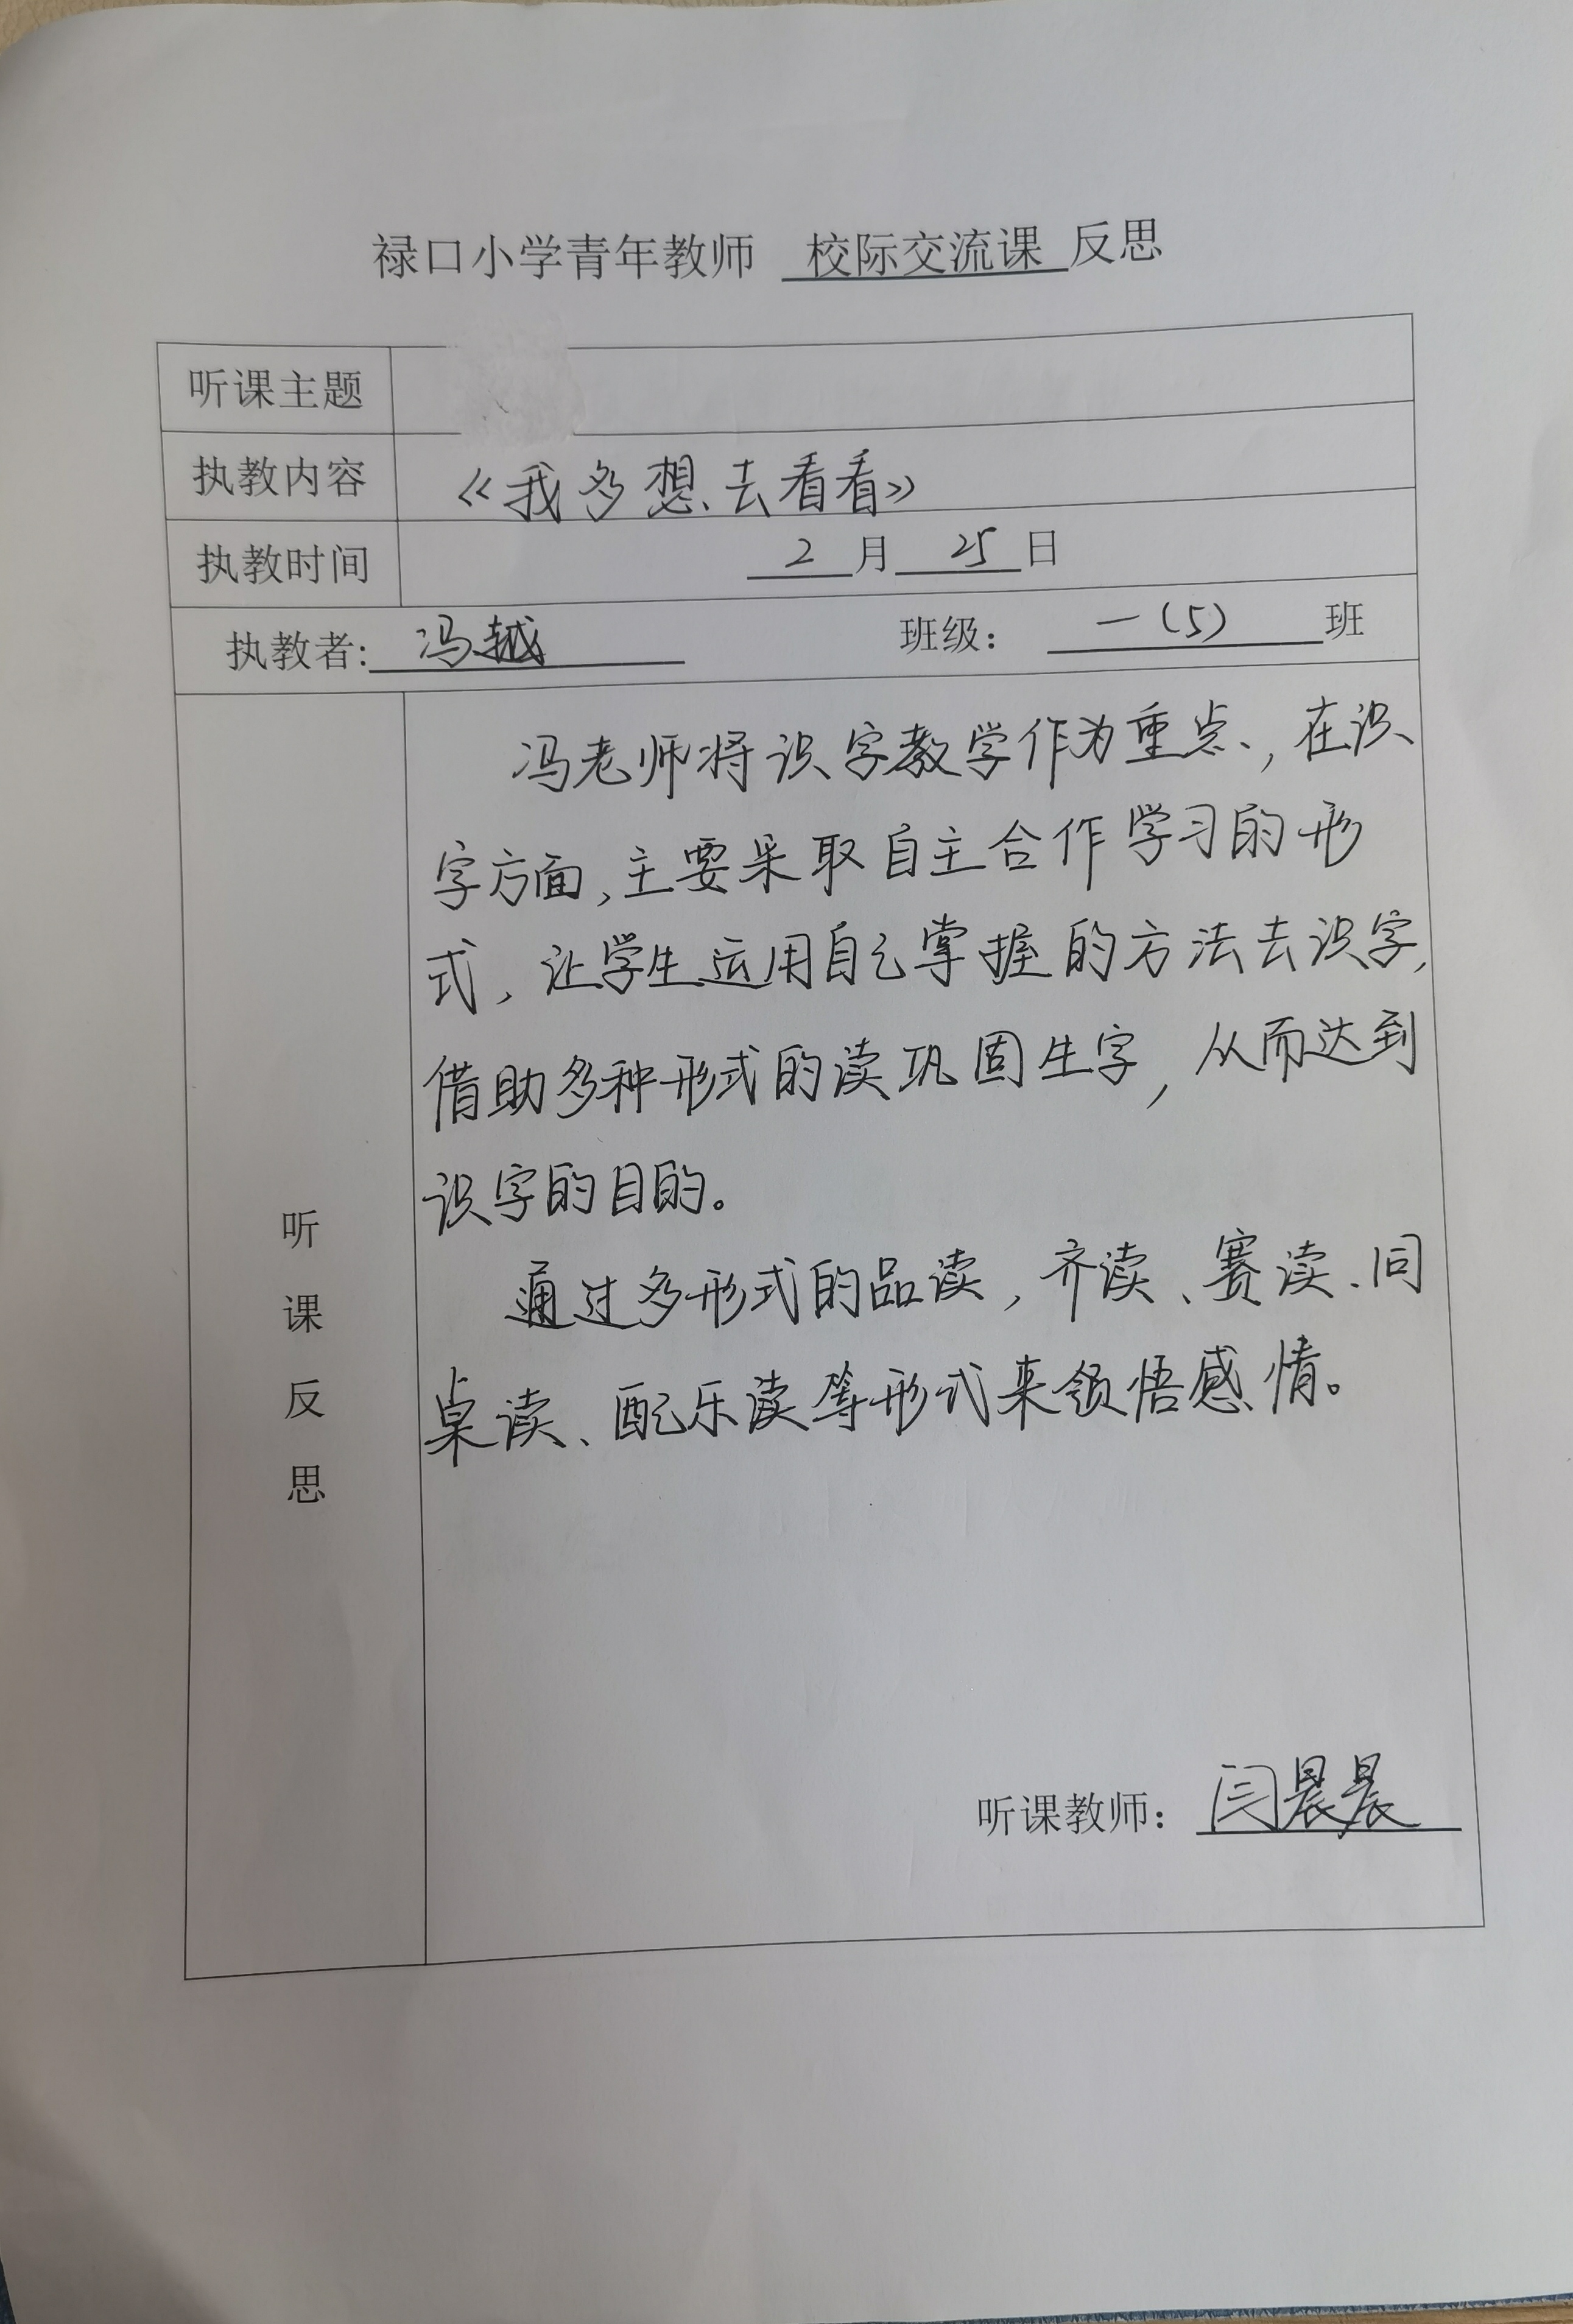 禄口小学青年教师 校际交流课 反思
听课主题
执教内容 《我多想去看看》
执教时间 2 月 25 日
执教者: 冯越 班级: 一(5) 班
听课反思
冯老师将识字教学作为重点,在识
字方面,主要采取自主合作学习的形
式,让学生运用自己掌握的方法去识字,
借助多种形式的读巩固生字,从而达到
识字的目的。
通过多形式的品读,齐读、赛读、同
桌读、配乐读等形式来领悟感情。
听课教师: 闫晨晨